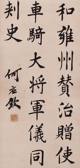 和雍州贊治贈使
車騎大将軍儀同
刺史
何应欽